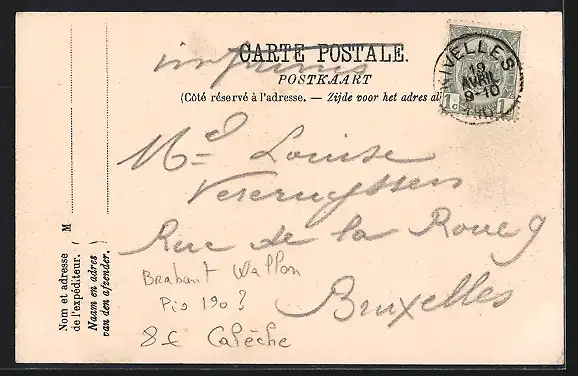 CARTE POSTALE.
imprimés
POSTKAART
(Côté réservé à l'adresse. — Zijde voor het adres
NIVELLES
19
AVRIL
9-10
1c 1
Md Louise
Vercruyssen
Rue de la Roue 9
Bruxelles
Brabant Wallon
Pio 190?
8 € Calèche
M
Nom et adresse
de l'expéditeur.
Naam en adres
van den afzender.